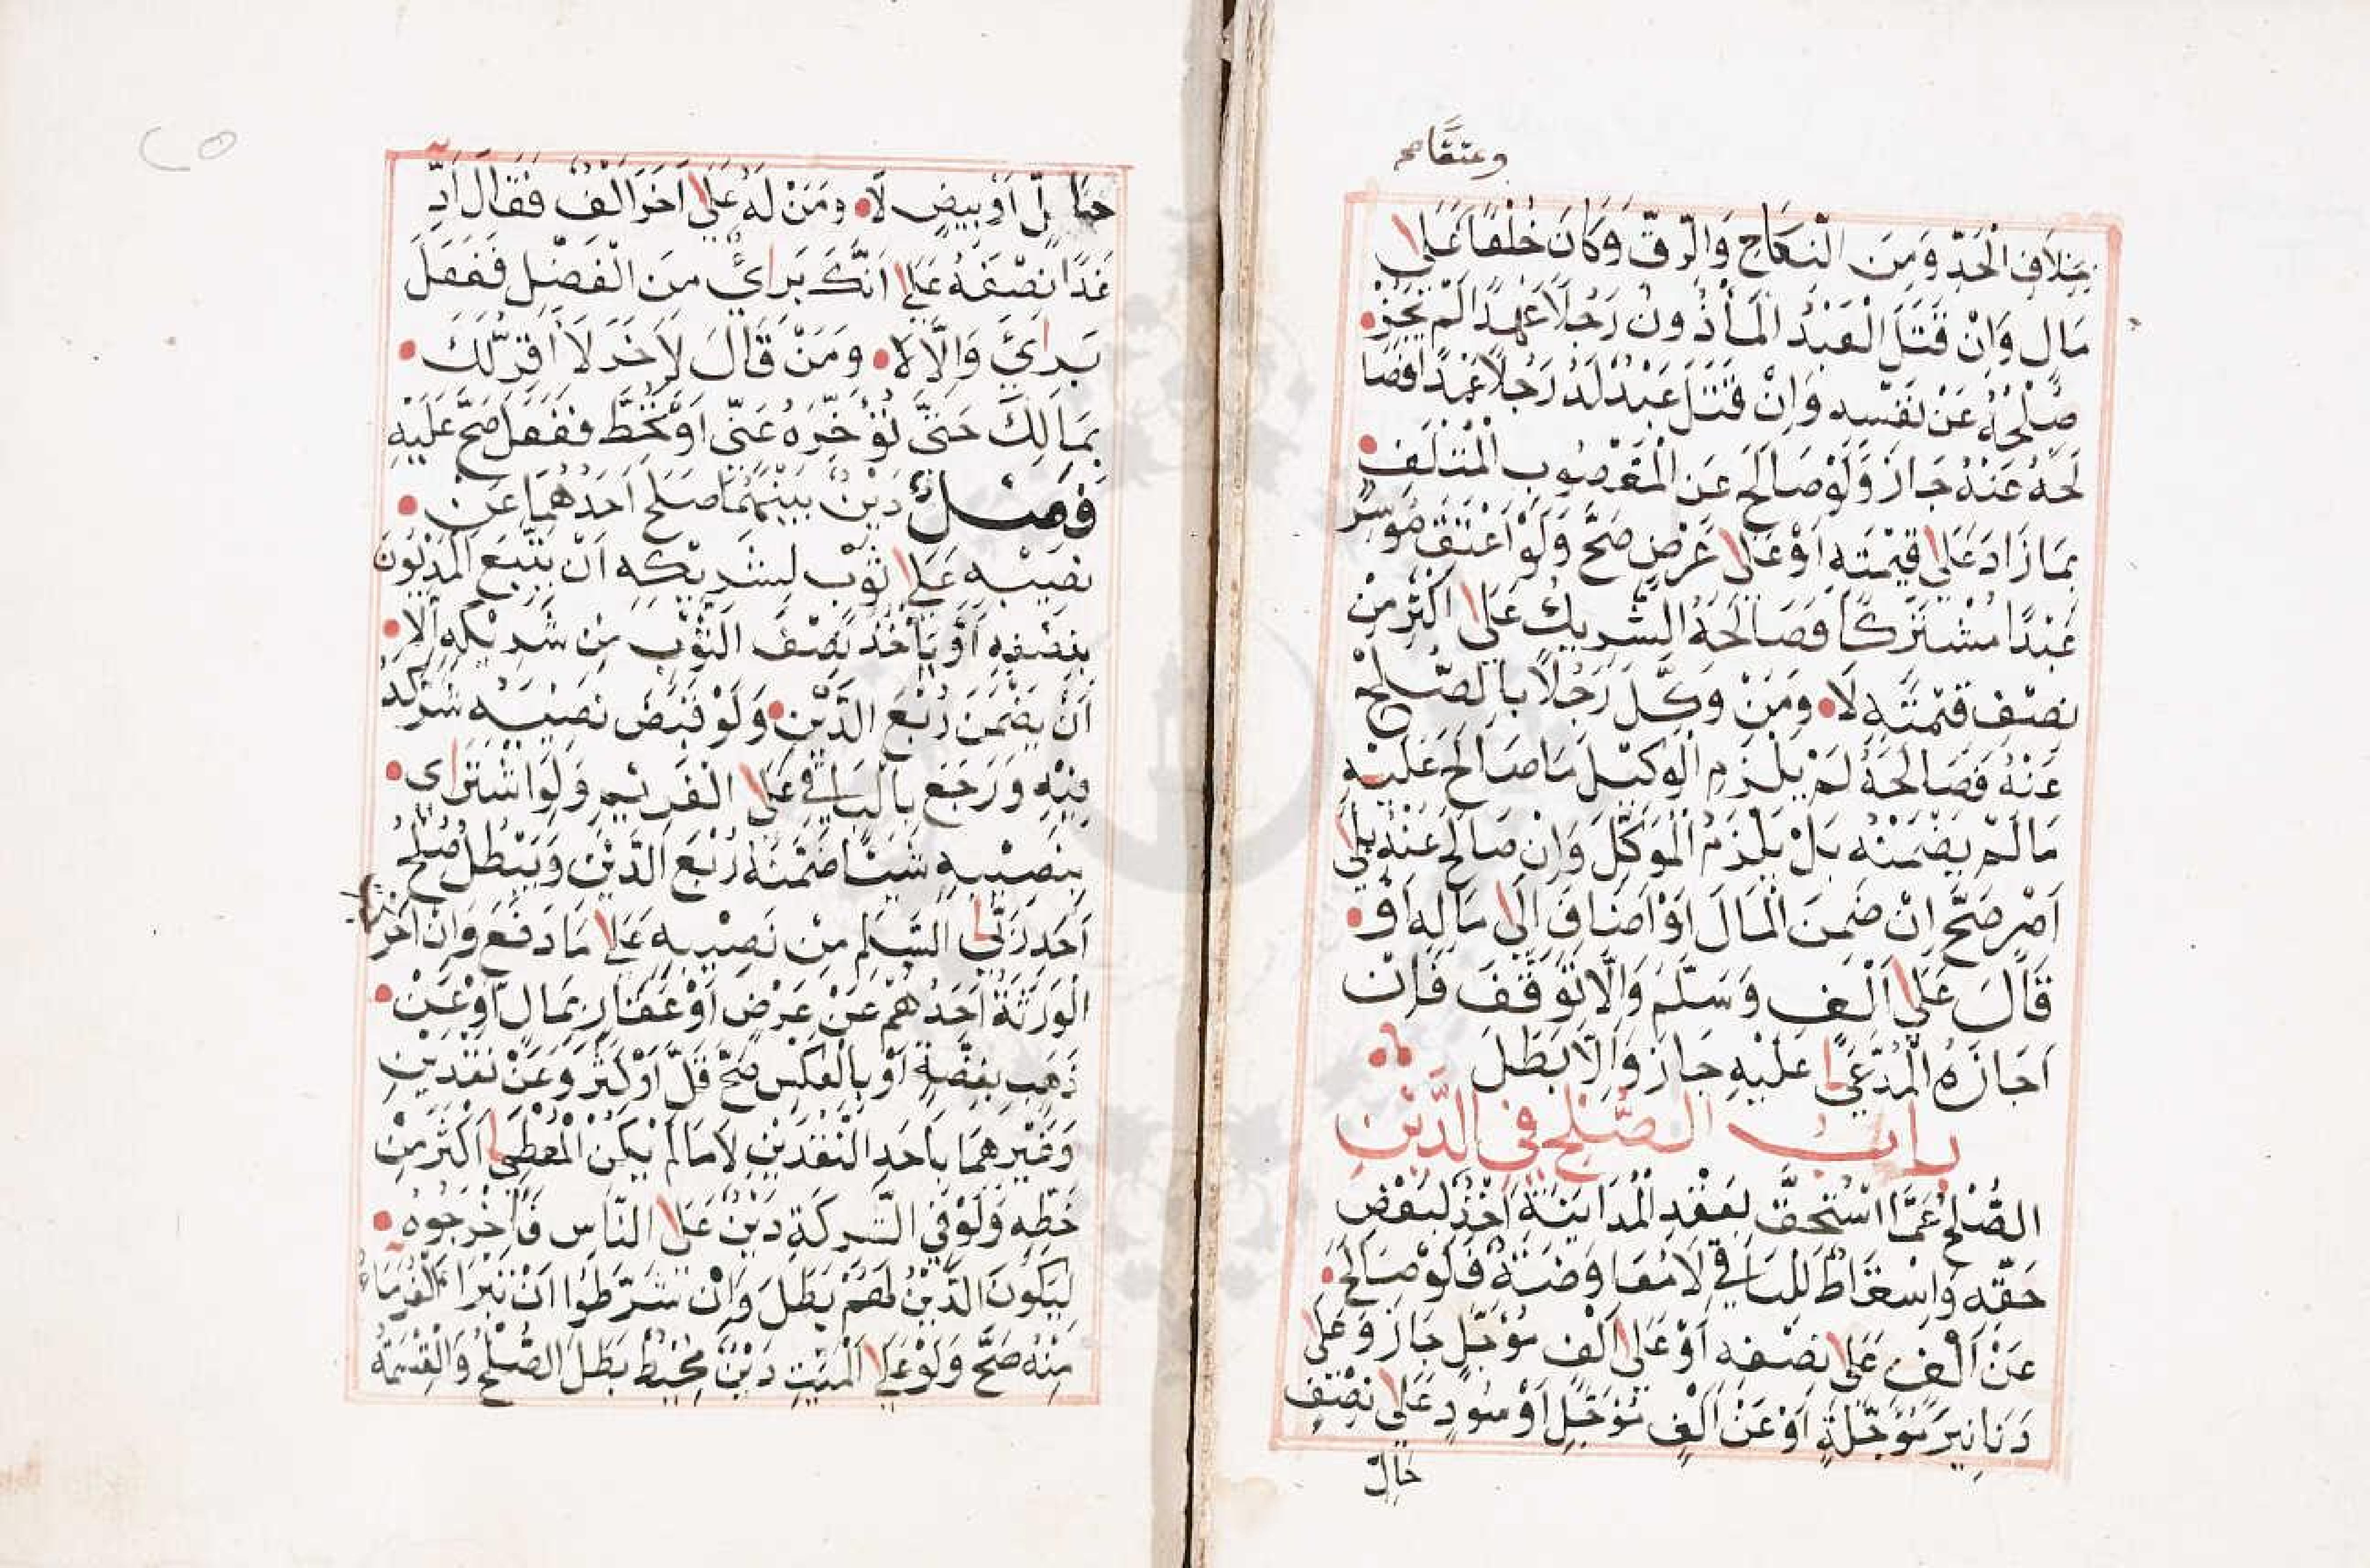 وعتقا صح
بِخِلَافِ الْحَدِّ وَمِنَ النِّعَاجِ وَالرِّقِّ وَكَانَ خُلْعًا عَلَى
مَالٍ وَإِنْ قَتَلَ الْعَبْدُ الْمَأْذُونُ رَجُلًا عَمْدًا لَمْ يَجُزْ
صُلْحُهُ عَنْ نَفْسِهِ وَإِنْ قَتَلَ عَبْدٌ لَهُ رَجُلًا عَمْدًا فَصَا
لَحَهُ عَنْهُ جَازَ وَلَوْ صَالَحَ عَنِ الْمَغْصُوبِ الْمُتْلَفِ
بِمَا زَادَ عَلَى قِيْمَتِهِ أَوْ عَلَى عَرْضٍ صَحَّ وَلَوْ أَعْتَقَ مُوسِرٌ
عَبْدًا مُشْتَرَكًا فَصَالَحَهُ الشَّرِيكُ عَلَى أَكْثَرَ مِنْ
نِصْفِ قِيْمَتِهِ لَا وَمَنْ وَكَّلَ رَجُلًا بِالصُّلْحِ
عَنْهُ فَصَالَحَهُ لَمْ يَلْزَمِ الْوَكِيْلَ مَا صَالَحَ عَلَيْهِ
مَا لَمْ يَضْمَنْهُ بَلْ يَلْزَمُ الْمُوَكِّلَ وَإِنْ صَالَحَ عَنْهُ بِلَا
أَمْرٍ صَحَّ إِنْ ضَمِنَ الْمَالَ أَوْ أَضَافَ إِلَى مَالِهِ أَوْ
قَالَ عَلَى أَلْفٍ وَسَلَّمَ وَإِلَّا تَوَقَّفَ فَإِنْ
أَجَازَهُ الْمُدَّعَى عَلَيْهِ جَازَ وَإِلَّا بَطَلَ
بَابُ الصُّلْحِ فِي الدَّيْنِ
الصُّلْحُ عَمَّا اسْتُحِقَّ بِعَقْدِ الْمُدَايَنَةِ أَخْذٌ لِبَعْضِ
حَقِّهِ وَإِسْقَاطٌ لِلْبَاقِي لَا مُعَاوَضَةٌ فَلَوْ صَالَحَ
عَنْ أَلْفٍ عَلَى نِصْفِهِ أَوْ عَلَى أَلْفٍ مُؤَجَّلٍ جَازَ وَعَلَى
دَنَانِيرَ مُؤَجَّلَةٍ أَوْ عَنْ أَلْفٍ مُؤَجَّلٍ أَوْ سُودٍ عَلَى نِصْفٍ
حَالٍّ
حَالٍّ أَوْ بِيضٍ لَا وَمَنْ لَهُ عَلَى آخَرَ أَلْفٌ فَقَالَ أَدِّ
غَدًا نِصْفَهُ عَلَى أَنَّكَ بَرِئٌ مِنَ الْفَضْلِ فَفَعَلَ
بَرِئَ وَإِلَّا لَا وَمَنْ قَالَ لِآخَرَ لَا أُقِرُّ لَكَ
بِمَالِكَ حَتَّى تُؤَخِّرَهُ عَنِّي أَوْ تَحُطَّ فَفَعَلَ صَحَّ عَلَيْهِ
فَصْلٌ دَيْنٌ بَيْنَهُمَا صَلَحَ أَحَدُهُمَا عَنْ
نَصِيْبِهِ عَلَى ثَوْبٍ لِشَرِيْكِهِ أَنْ يَتْبَعَ الْمَدْيُونَ
بِنِصْفِهِ أَوْ يَأْخُذَ نِصْفَ الثَّوْبِ مِنْ شَرِيْكِهِ إِلَّا
أَنْ يَضْمَنَ رُبْعَ الدَّيْنِ وَلَوْ قَبَضَ نَصِيْبَهُ شَرِكَهُ
فِيْهِ وَرَجَعَ بِالْبَاقِي عَلَى الْغَرِيْمِ وَلَوِ اشْتَرَى
بِنَصِيْبِهِ شَيْئًا ضَمَّنَهُ رُبْعَ الدَّيْنِ وَيَبْطُلُ صُلْحُ
أَحَدِ رَبَّيِ السَّلَمِ مِنْ نَصِيْبِهِ عَلَى مَا دَفَعَ وَإِنْ أَخْرَ
جَتِ
الْوَرَثَةُ أَحَدَهُمْ عَنْ عَرْضٍ أَوْ عَقَارٍ بِمَالٍ أَوْ عَنْ
ذَهَبٍ بِفِضَّةٍ أَوْ بِالْعَكْسِ صَحَّ قَلَّ أَوْ كَثُرَ وَعَنْ نَقْدَيْنِ
وَغَيْرِهِمَا بِأَحَدِ النَّقْدَيْنِ لَا مَا لَمْ يَكُنِ الْمُعْطَى أَكْثَرَ مِنْ
حَظِّهِ وَلَوْ فِي التَّرِكَةِ دَيْنٌ عَلَى النَّاسِ فَأَخْرَجُوهُ
لِيَكُونَ الدَّيْنُ لَهُمْ بَطَلَ وَإِنْ شَرَطُوا أَنْ تَبْرَأَ الْغُرَمَاءُ
مِنْهُ صَحَّ وَلَوْ عَلَى الْمَيِّتِ دَيْنٌ مُحِيْطٌ بَطَلَ الصُّلْحُ وَالْقِسْمَةُ